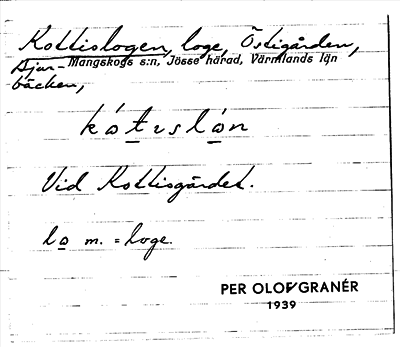 Kottislogen, loge, Östigården,
Mangskogs s:n, Jösse härad, Värmlands län
Djur-
bäcken,
kótıslón
Vid Kottisgärdet.
lo m. = loge.
PER OLOF GRANÉR
1939